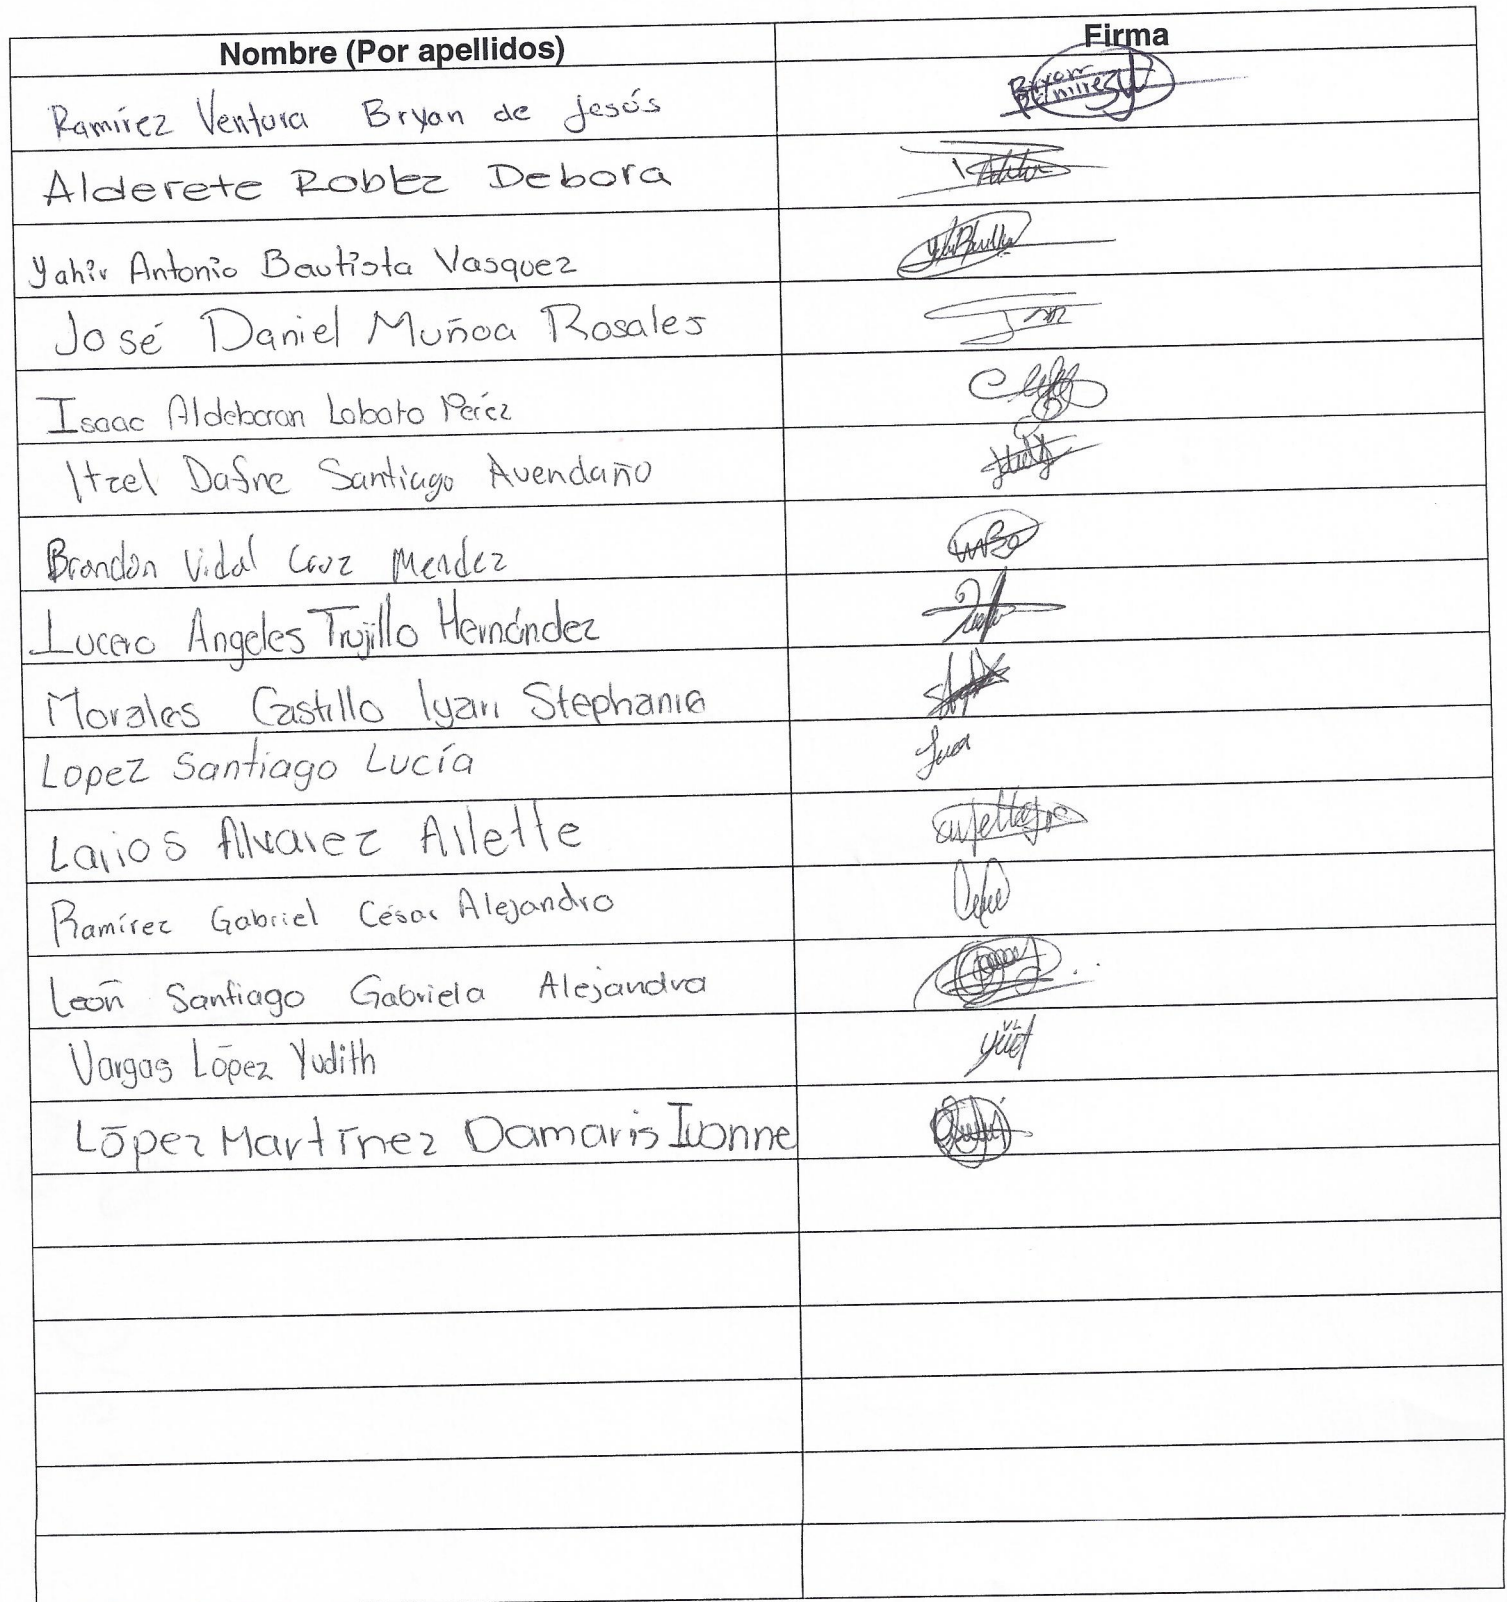 Nombre (Por apellidos) Firma
Ramírez Ventura Bryan de Jesús Bryan Ramirez
Alderete Roblez Debora
Yahir Antonio Bautista Vasquez
José Daniel Muñoa Rosales
Isaac Aldebaran Lobato Peréz
Itzel Dafne Santiago Avendaño
Brandon Vidal Cruz Mendez
Lucero Angeles Trujillo Hernández
Morales Castillo Iyari Stephania
Lopez Santiago Lucía
Larios Alvarez Arlette
Ramírez Gabriel César Alejandro
León Santiago Gabriela Alejandra
Vargas López Yudith
López Martínez Damaris Ivonne